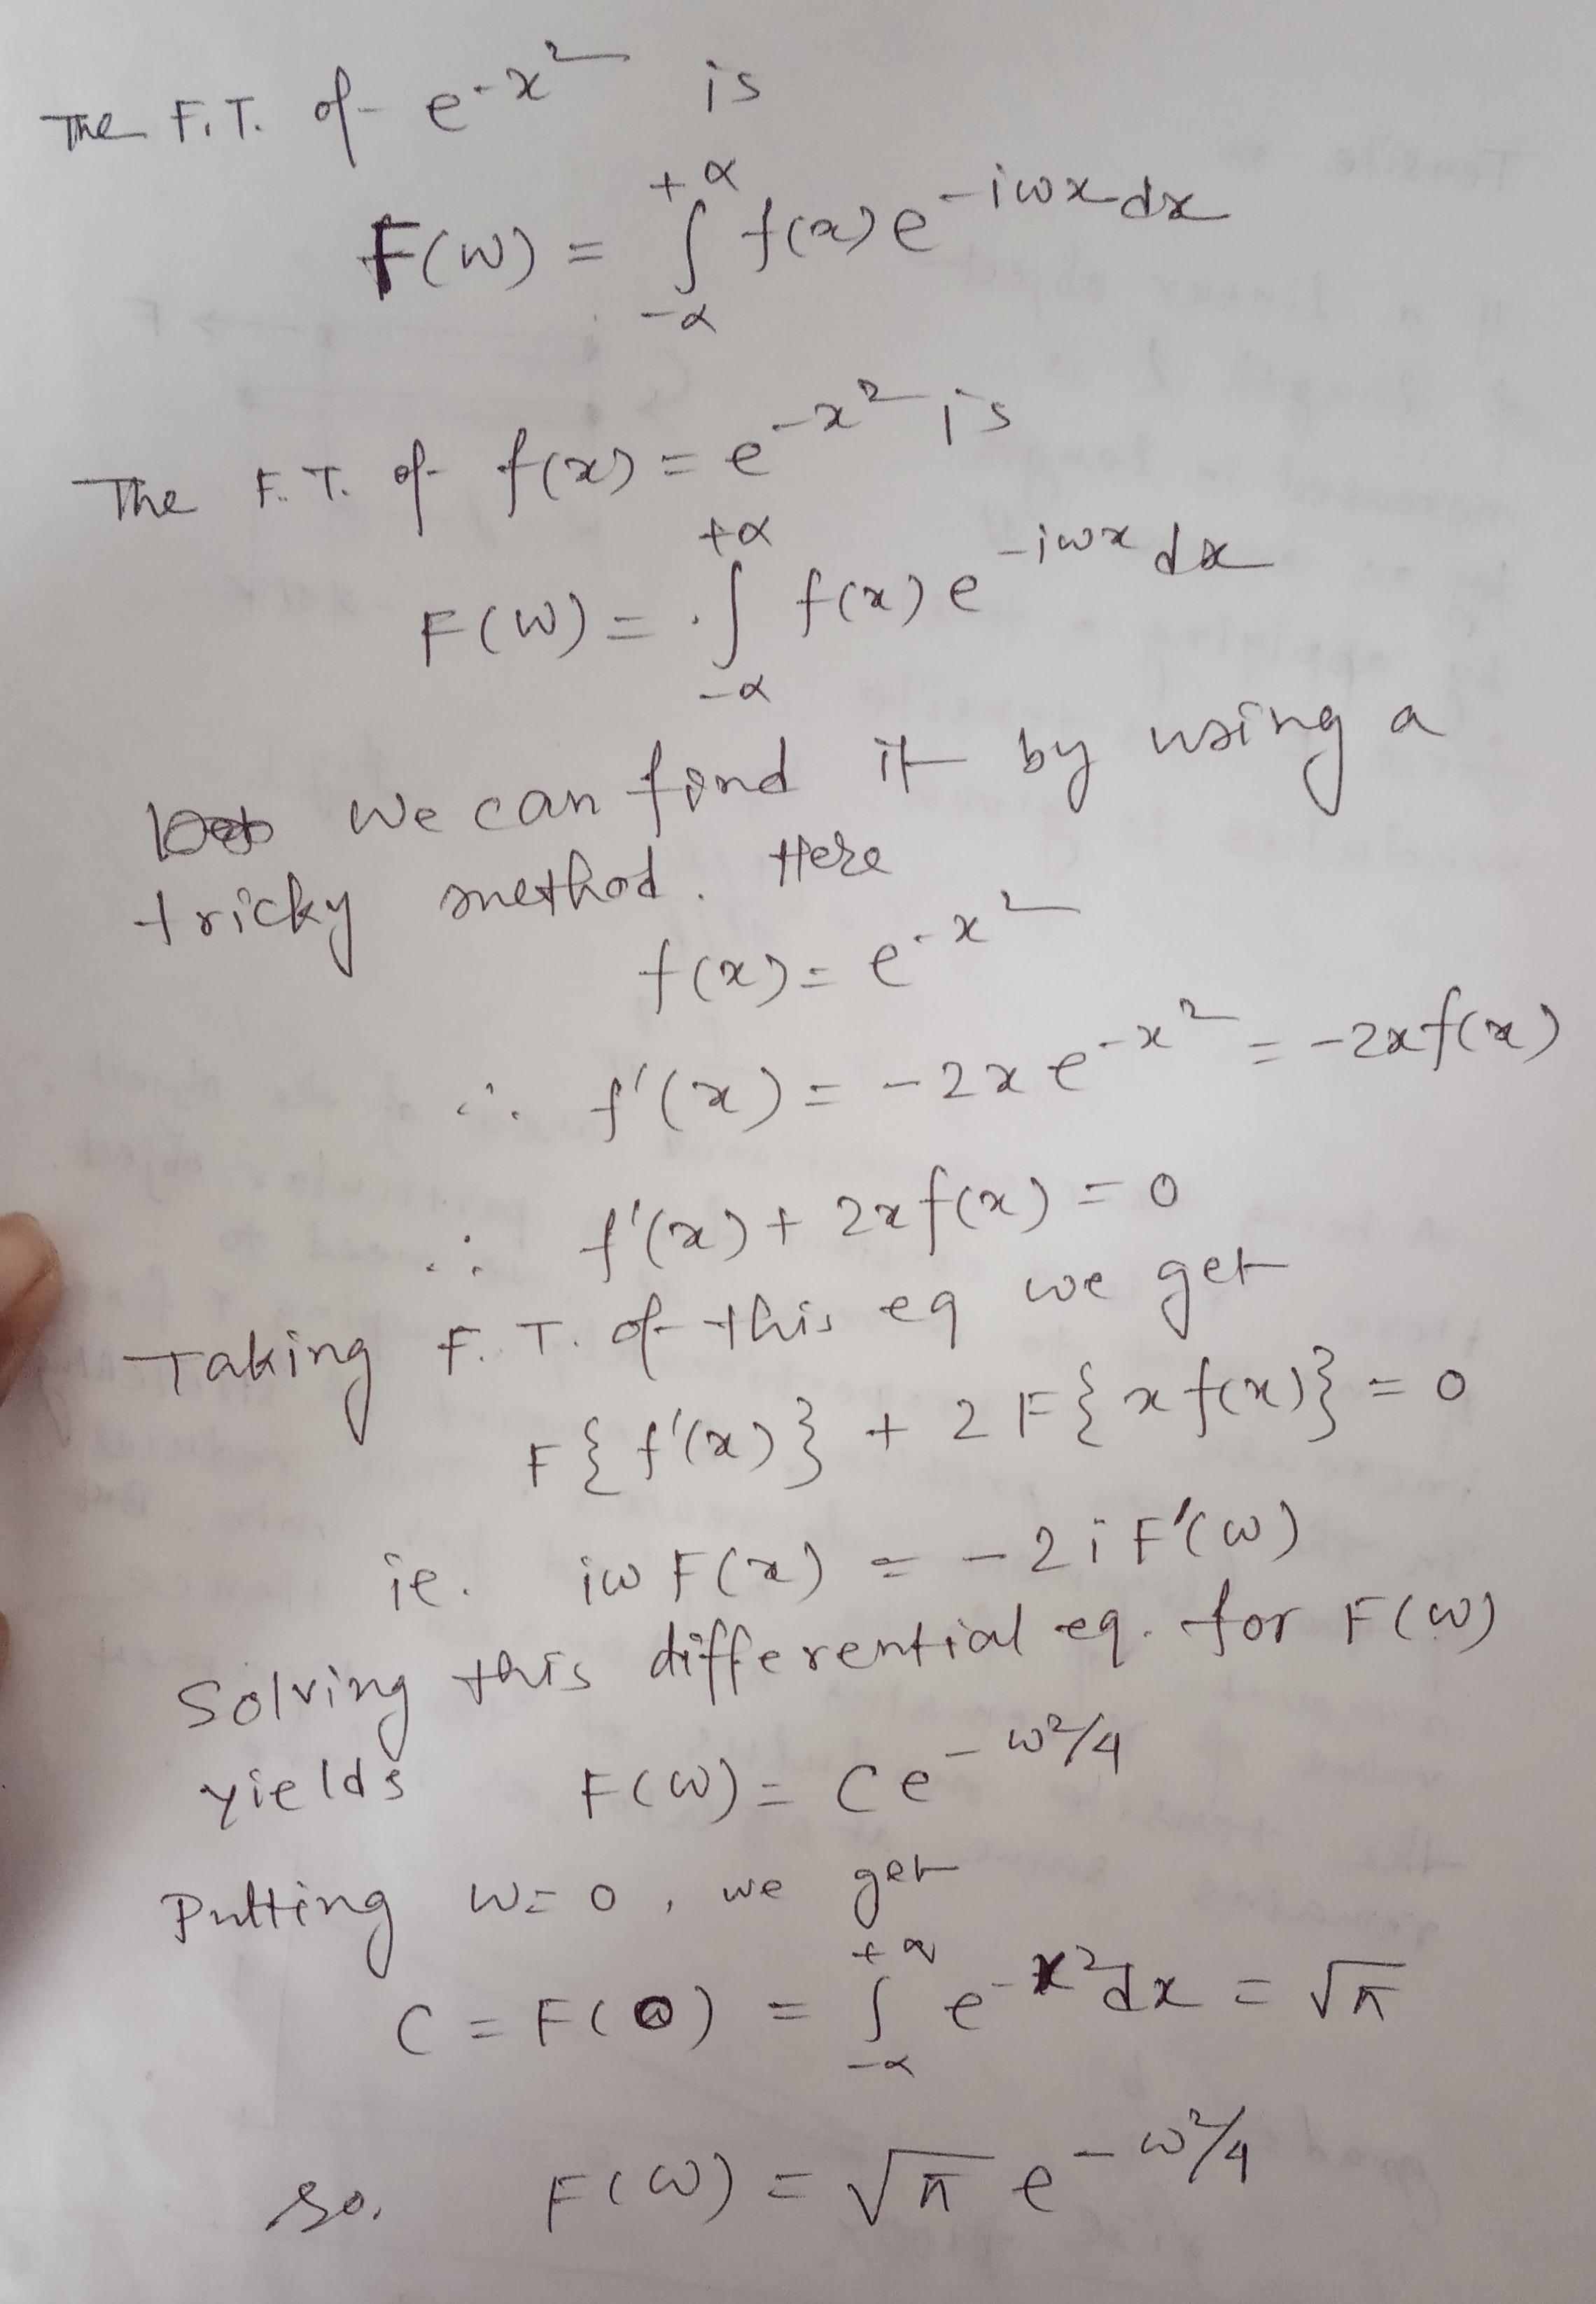 The F.T. of e^{-x^2} is
F(ω) = ∫_{-α}^{+α} f(x) e^{-iωx} dx
The F.T. of f(x) = e^{-x^2} is
F(ω) = ∫_{-α}^{+α} f(x) e^{-iωx} dx
We can find it by using a
tricky method. Here
f(x) = e^{-x^2}
∴ f'(x) = -2x e^{-x^2} = -2x f(x)
∴ f'(x) + 2x f(x) = 0
Taking F.T. of this eq we get
F{f'(x)} + 2 F{x f(x)} = 0
ie. iω F(x) = -2i F'(ω)
Solving this differential eq. for F(ω)
yields F(ω) = C e^{-ω^2/4}
Putting ω = 0, we get
C = F(0) = ∫_{-α}^{+α} e^{-x^2} dx = √π
So, F(ω) = √π e^{-ω^2/4}